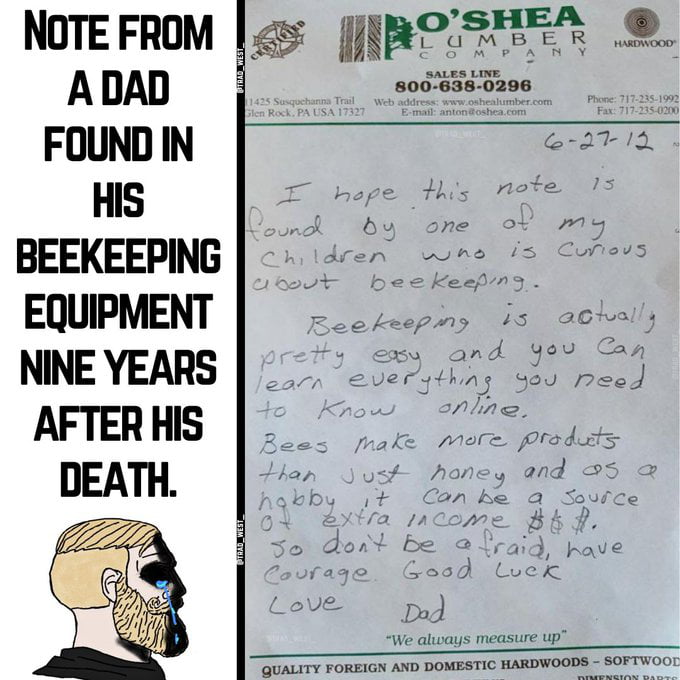 NOTE FROM
A DAD
FOUND IN
HIS
BEEKEEPING
EQUIPMENT
NINE YEARS
AFTER HIS
DEATH.
@TRAD_WEST_
@TRAD_WEST_
O'SHEA
LUMBER
COMPANY
HARDWOOD
SALES LINE
800-638-0296
11425 Susquehanna Trail Web address: www.oshealumber.com Phone: 717-235-1992
Glen Rock, PA USA 17327 E-mail: anton@oshea.com Fax: 717-235-0200
@TRAD_WEST_
6-27-12
I hope this note is
found by one of my
children who is curious
about beekeeping.
Beekeeping is actually
pretty easy and you can
learn everything you need
to know online.
Bees make more products
than just honey and as a
hobby it can be a source
of extra income $$$.
So don't be afraid, have
courage. Good Luck
Love Dad
@TRAD_WEST_
"We always measure up"
QUALITY FOREIGN AND DOMESTIC HARDWOODS - SOFTWOOD
DIMENSION PARTS